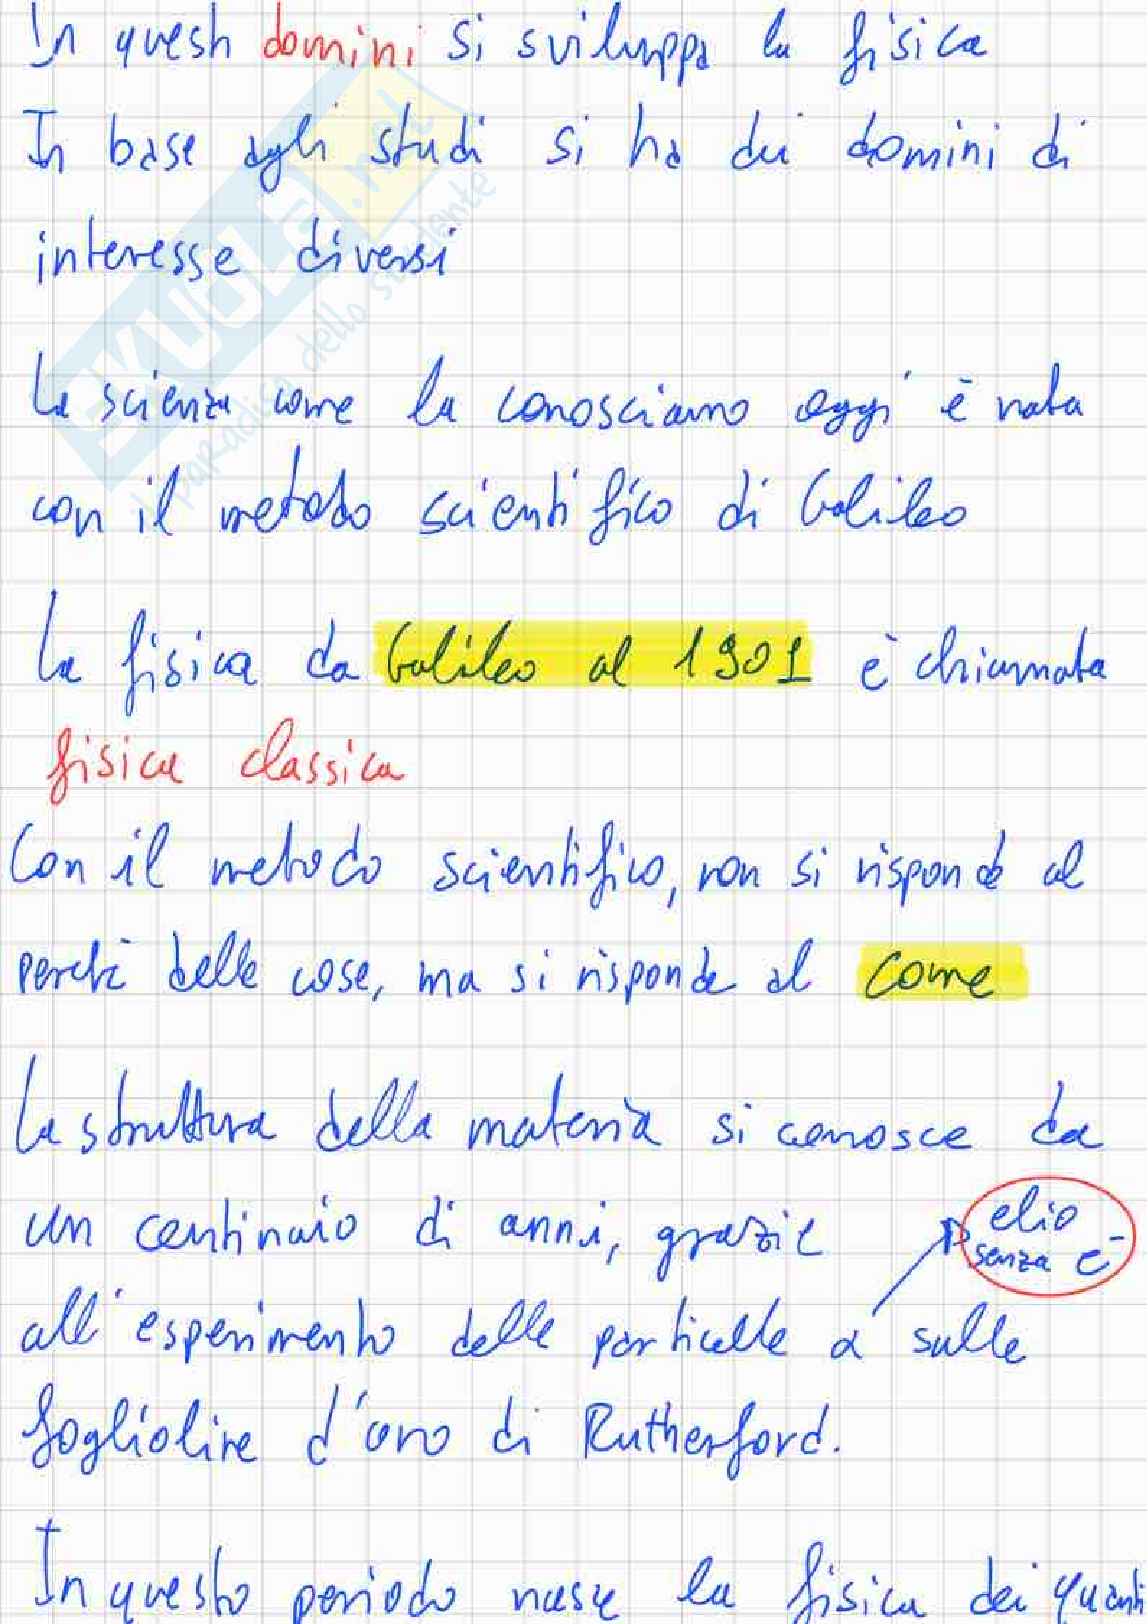 In questi domini si sviluppa la fisica
In base agli studi si ha dei domini di
interesse diversi
La scienza come la conosciamo oggi è nata
con il metodo scientifico di Galileo
La fisica da Galileo al 1901 è chiamata
fisica classica
Con il metodo scientifico, non si risponde al
perché delle cose, ma si risponde al come
La struttura della materia si conosce da
un centinaio di anni, grazie
elio
senza e⁻
all'esperimento delle particelle α sulle
foglioline d'oro di Rutherford.
In questo periodo nasce la fisica dei quanti
SKUOLA.net
il paradiso dello studente